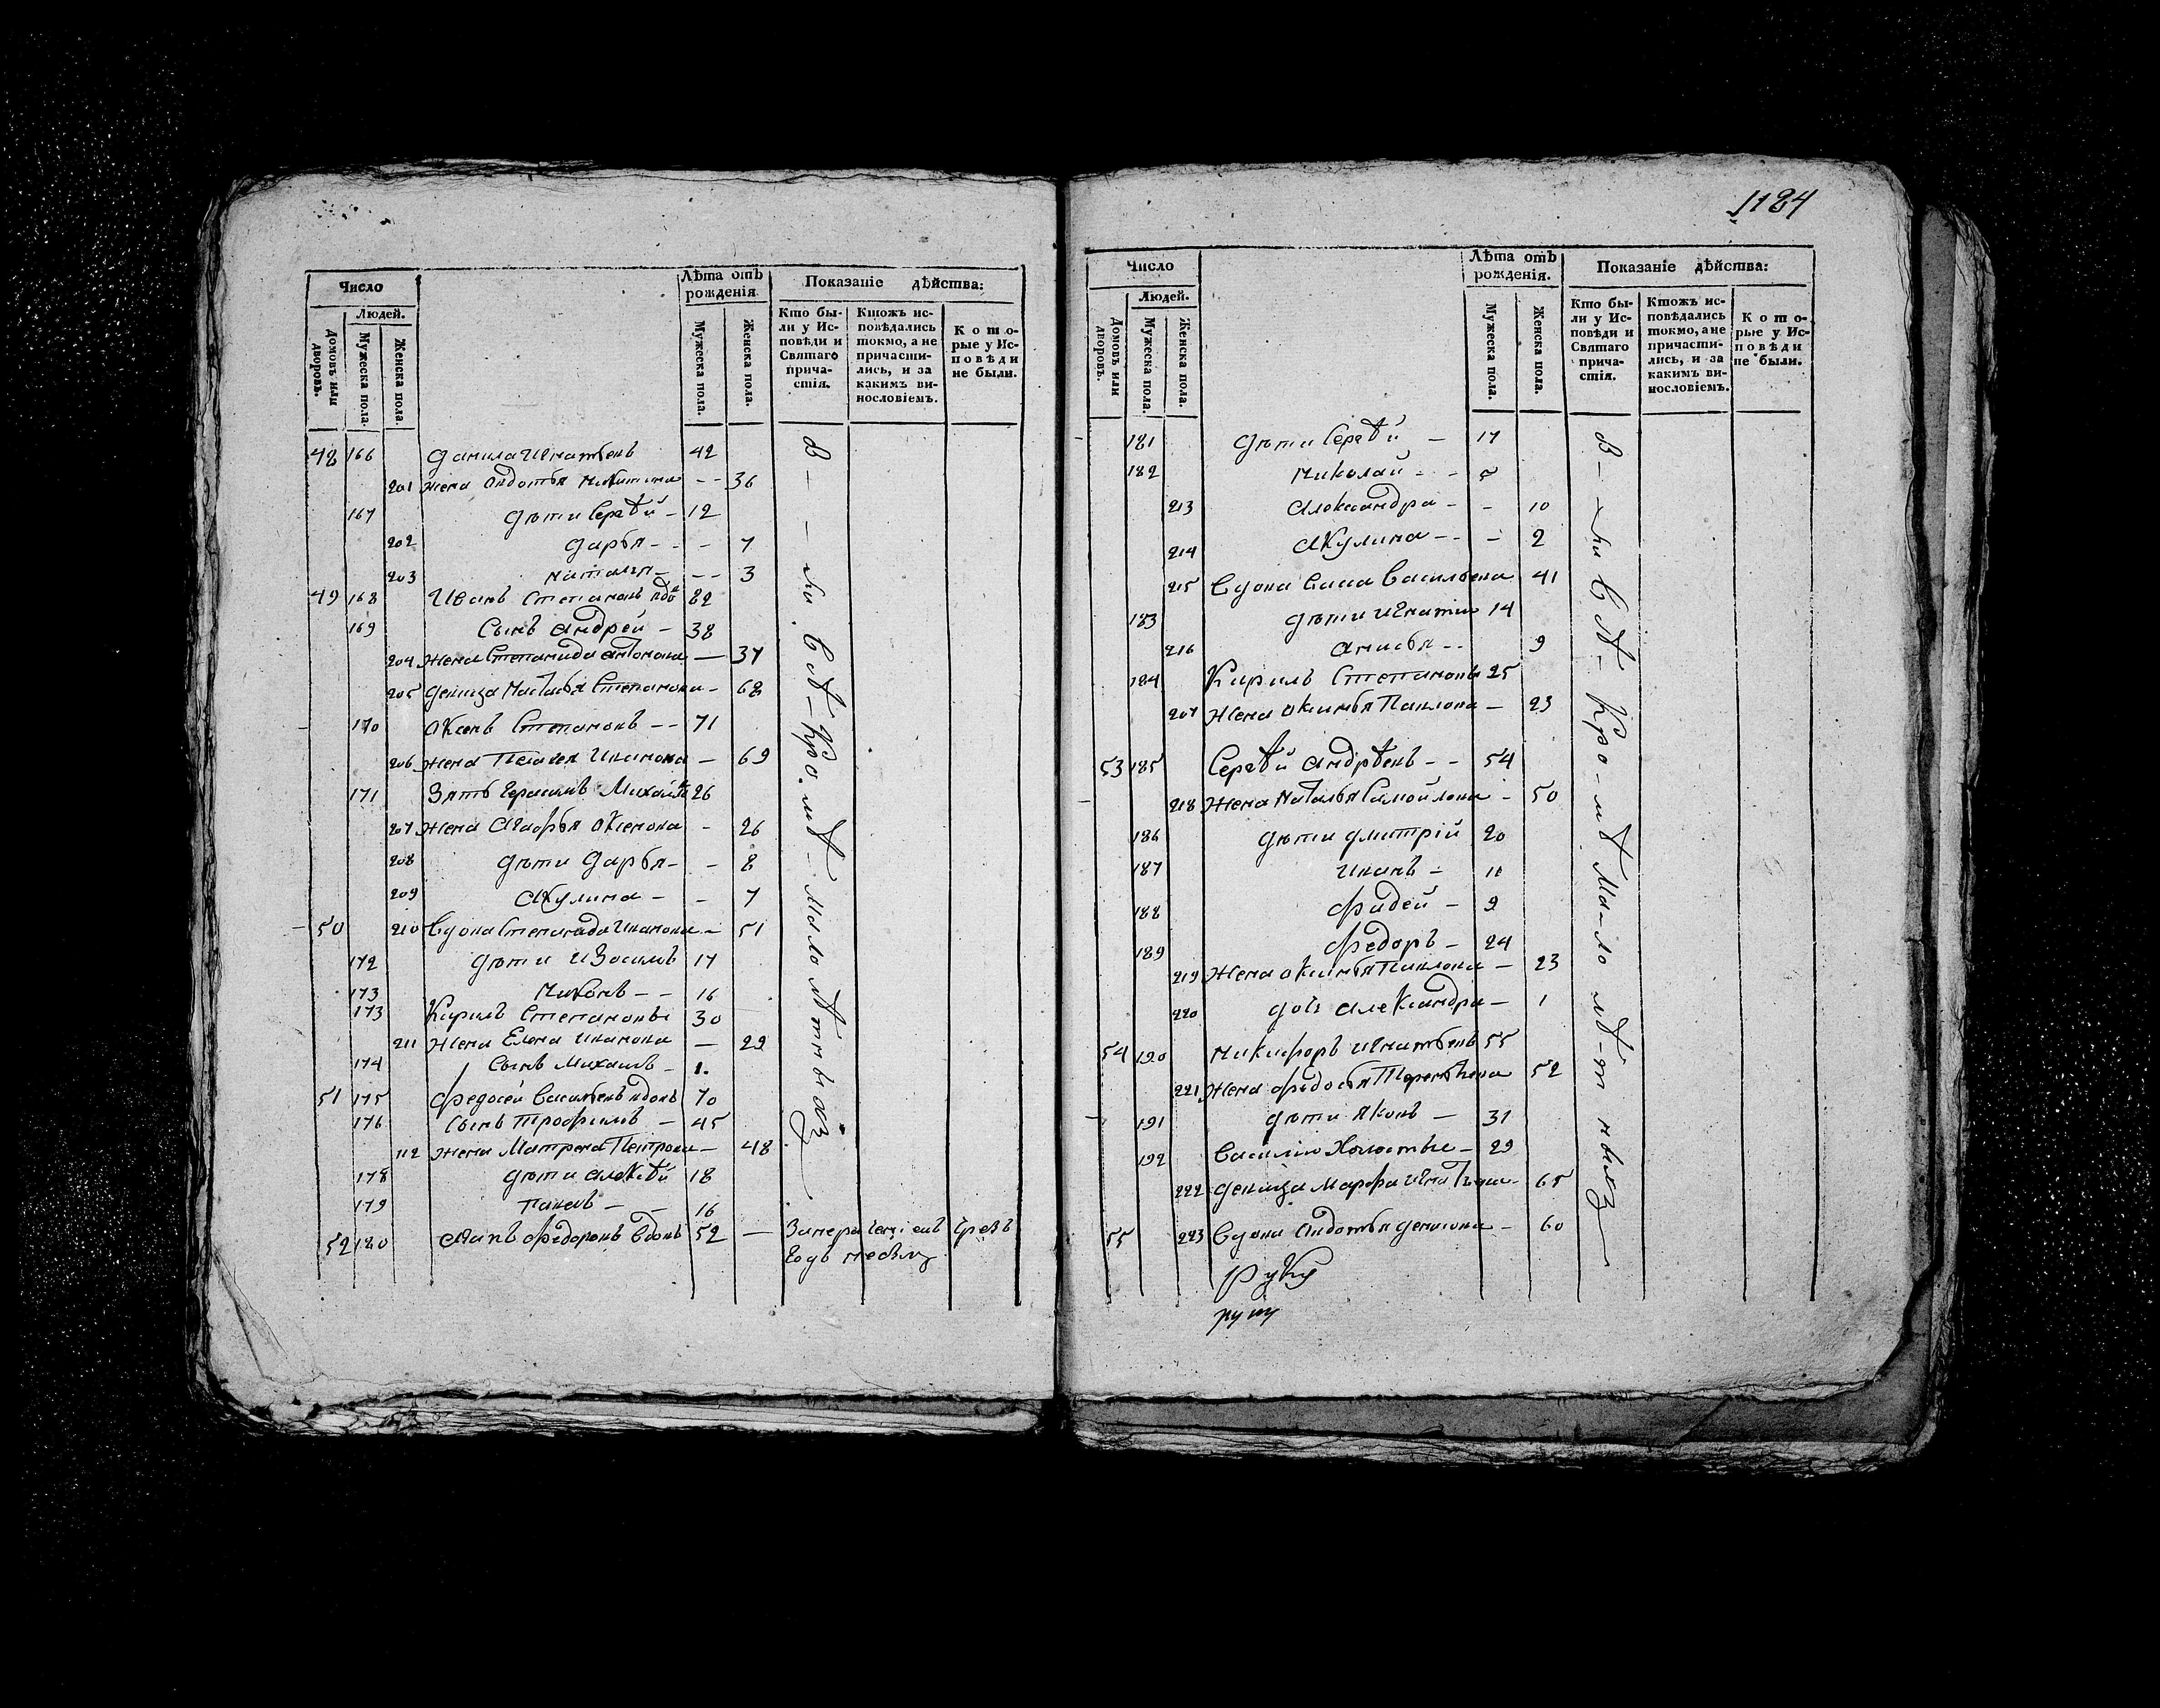 1184
Число
Людей.
Домовъ или дворовъ.
Мужеска пола.
Женска пола.
Лѣта отъ рожденія.
Мужеска пола.
Женска пола.
Показаніе дѣйства:
Кто бы-
ли у Ис-
повѣди и
Святаго
прича-
стія.
Ктожъ ис-
повѣдались
токмо, а не
причасти-
лись, и за
какимъ ви-
нословіемъ.
К о т о-
рые у Ис-
п о в ѣ д и
не были.
48 166 Данила Игнатьевъ 42
201 жена Авдотья Микитина - - 36
167 дѣти Сергѣй - 12
202 Дарья - - - 7
203 Наталья - - - 3
49 168 Иванъ Степановъ вдо 82
169 Сынъ Андрей - 38
204 жена Степанида Антонова — 37
205 девица Наталья Степанова - 68
170 Степановъ - - 71
206 жена Пелагея Иванова - 69
171 Зять Герасимъ Михайло 26
207 жена Агафья - 26
208 дѣти Дарья - - 8
209 Акулина - - 7
50 210 Вдова Степанида Иванова - 51
172 дѣти Изосимъ 17
173 Никонъ - - 16
173 Кирилъ Степановъ 30
211 жена Елена Иванова — 29
174 Сынъ Михаилъ - 1.
51 175 Федосей Васильевъ вдовъ 70
176 Сынъ Трофимъ - 45
112 жена Матрена Петрова - 48
178 дѣти Алексѣй 18
179 Павелъ - - 16
52 180 Федоровъ Вдовъ 52 —
годъ
В - - - ли всѣ - кро. мѣ - малолѣтныхъ
Число
Людей.
Домовъ или дворовъ.
Мужеска пола.
Женска пола.
Лѣта отъ рожденія.
Мужеска пола.
Женска пола.
Показаніе дѣйства:
Кто бы-
ли у Ис-
повѣди и
Святаго
прича-
стія.
Ктожъ ис-
повѣдались
токмо, а не
причасти-
лись, и за
какимъ ви-
нословіемъ.
К о т о-
рые у Ис-
п о в ѣ д и
не были.
181 дѣти Сергѣй - 17
182 Николай - - 5
213 Александра - - 10
214 Акулина - - - 2
215 Вдова Васильева 41
183 дѣти Игнатии 14
216 Анисья - - 9
184 Кирилъ Степановъ 25
207 жена Аксинья Павлова - 23
53 185 Сергѣй Андрѣевъ - - 54
218 жена Наталья Самойлова - 50
186 дѣти Дмитрій 20
187 Иванъ - 11
188 Фадей - 9
189 Федоръ - 24
219 жена Аксинья Павлова - 23
220 дочь Александра - 1
54 190 Никифоръ Игнатьевъ 55
221 жена Федосья 52
191 дѣти Яковъ - 31
192 Василий Холостые - 29
222 девица Марфа - 65
55 223 Вдова Авдотья Денисова - 60
В - - ли всѣ - кро - мѣ ма - ло лѣ - т ныхъ
Руку